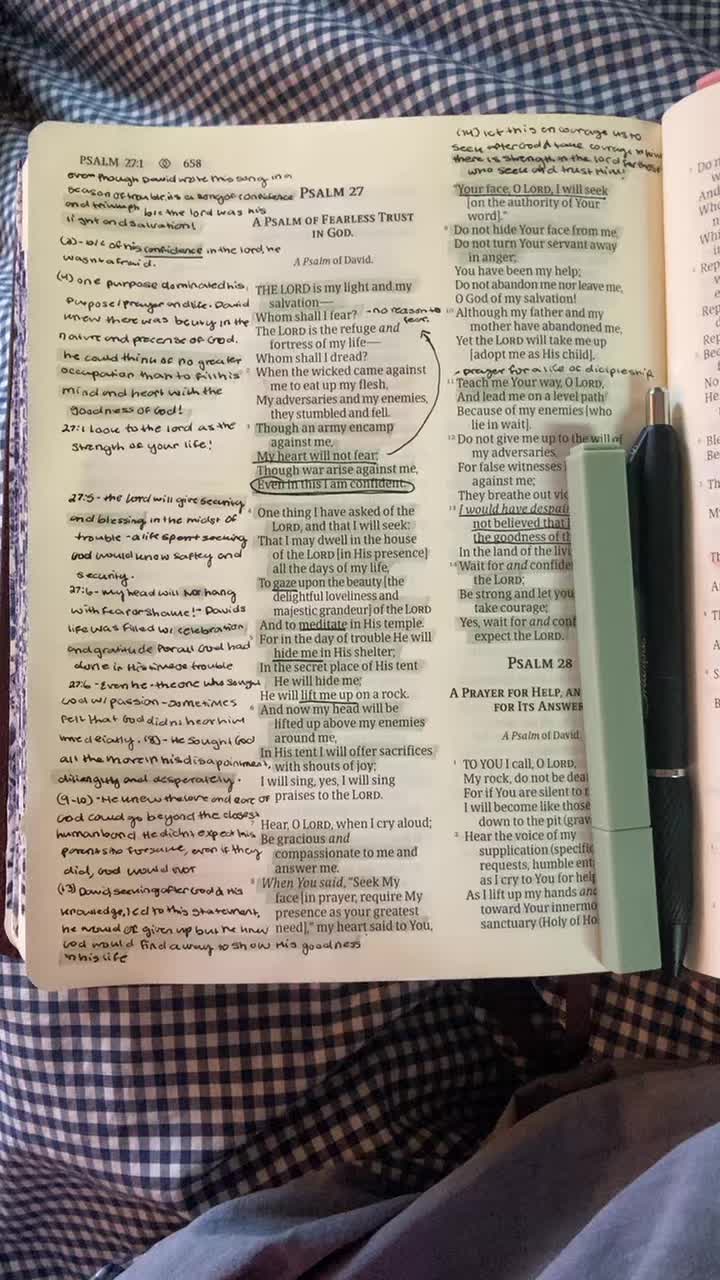 PSALM 27:1 658
even though David wrote this song in a
season of trouble, its a song of confidence
and triumph b/c the lord was his
light and salvation!
(3)- b/c of his confidence in the lord, he
wasn't afraid.
(4) one purpose dominated his
purpose/prayer and life. David
knew there was beauty in the
nature and presense of God.
he could think of no greater
occupation than to fill his
mind and heart with the
goodness of God!
27:1 look to the lord as the
strength of your life!
27:5 - the lord will give security
and blessing in the midst of
trouble - a life spent seeking
God would know saftey and
security.
27:6 - my head will not hang
with fear or shame! - Davids
life was filled w/ celebration
and gratitude for all God had
done in his time of trouble
27:6 - Even he - the one who sought
God w/ passion - sometimes
felt that God didnt hear him
immediatly. (8) - He sought God
all the more in his disapointment,
diligently and desperately.
(9-10) - He knew the love and care of
God could go beyond the closest
human bond. He didnt expect his
parents to forsake, even if they
did, God would not
(13) David seeking after God & his
knowledge, led to this statement,
he would of given up but he knew
God would find a way to show His goodness
in his life
PSALM 27
A PSALM OF FEARLESS TRUST
IN GOD.
A Psalm of David.
THE LORD is my light and my
salvation—
Whom shall I fear? - no reason to
fear.
The LORD is the refuge and
fortress of my life—
Whom shall I dread?
2 When the wicked came against
me to eat up my flesh,
My adversaries and my enemies,
they stumbled and fell.
3 Though an army encamp
against me,
My heart will not fear;
Though war arise against me,
Even in this I am confident.
4 One thing I have asked of the
LORD, and that I will seek:
That I may dwell in the house
of the LORD [in His presence]
all the days of my life,
To gaze upon the beauty [the
delightful loveliness and
majestic grandeur] of the LORD
And to meditate in His temple.
5 For in the day of trouble He will
hide me in His shelter;
In the secret place of His tent
He will hide me;
He will lift me up on a rock.
6 And now my head will be
lifted up above my enemies
around me,
In His tent I will offer sacrifices
with shouts of joy;
I will sing, yes, I will sing
praises to the LORD.
7 Hear, O LORD, when I cry aloud;
Be gracious and
compassionate to me and
answer me.
8 When You said, "Seek My
face [in prayer, require My
presence as your greatest
need]," my heart said to You,
(14) let this encourage us to
seek after God & take courage in him
there is strength in the lord for those
who seek and trust Him!
"Your face, O LORD, I will seek
[on the authority of Your
word]."
9 Do not hide Your face from me,
Do not turn Your servant away
in anger;
You have been my help;
Do not abandon me nor leave me,
O God of my salvation!
10 Although my father and my
mother have abandoned me,
Yet the LORD will take me up
[adopt me as His child].
- prayer for a life of discipleship
11 Teach me Your way, O LORD,
And lead me on a level path
Because of my enemies [who
lie in wait].
12 Do not give me up to the will of
my adversaries,
For false witnesses
against me;
They breathe out
13 I would have
not believed that
the goodness of
In the land of the
14 Wait for and
the LORD;
Be strong and let you
take courage;
Yes, wait for and
expect the LORD.
PSALM 28
A PRAYER FOR HELP, AN
FOR ITS ANSWER
A Psalm of David
1 TO YOU I call, O LORD,
My rock, do not be
For if You are silent to
I will become like those
down to the pit
2 Hear the voice of my
supplication
requests, humble
as I cry to You for
As I lift up my hands and
toward Your
sanctuary (Holy of